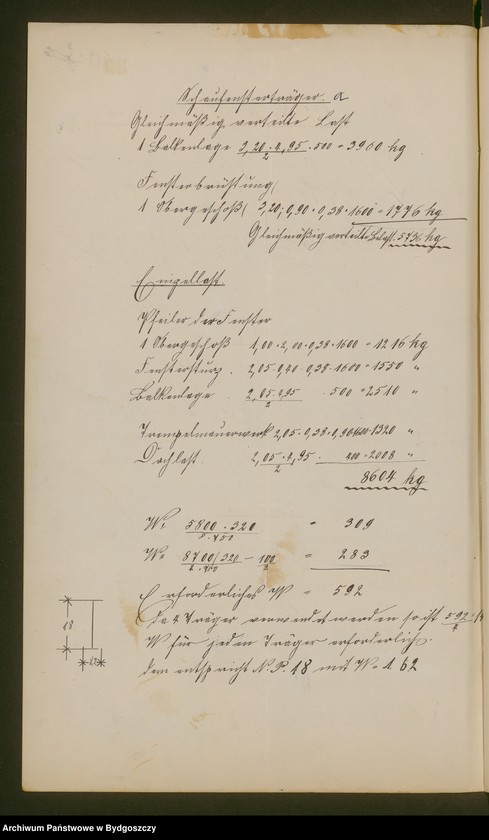 Schaufensterträger. a
Gleichmäßig verteilte Last
1 Balkenlage 3,20 · 4,95 / 2 · 500 = 3960 kg
Fensterbrüstung
1 Obergeschoß 3,20 · 0,90 · 0,38 · 1600 = 1776 kg
Gleichmäßig verteilte Belast. 5736 kg
Einzellast.
Pfeiler der Fenster
1 Obergeschoß 1,00 · 2,00 · 0,38 · 1600 = 1216 kg
Fenstersturz. 2,05 · 0,38 · 1600 = 1550 "
Balkenlage 2,05 · 4,95 / 2 · 500 = 2510 "
Trempelmauerwerk 2,05 · 0,38 · 0,90 · 1320 "
Dachlast 2,05 · 4,95 / 2 · 400 = 2008 "
8604 kg
W = 5800 · 320 / 8 · 750 = 309
W = 8700 / 320 / 4 · 750 - 100 / 2 = 283
Erforderliches W = 592
da 4 Träger verwendet werden so ist 592 / 4
W für jeden Träger erforderlich.
dem entspricht N. P. 18 mit W = 162
18
Archiwum Państwowe w Bydgoszczy